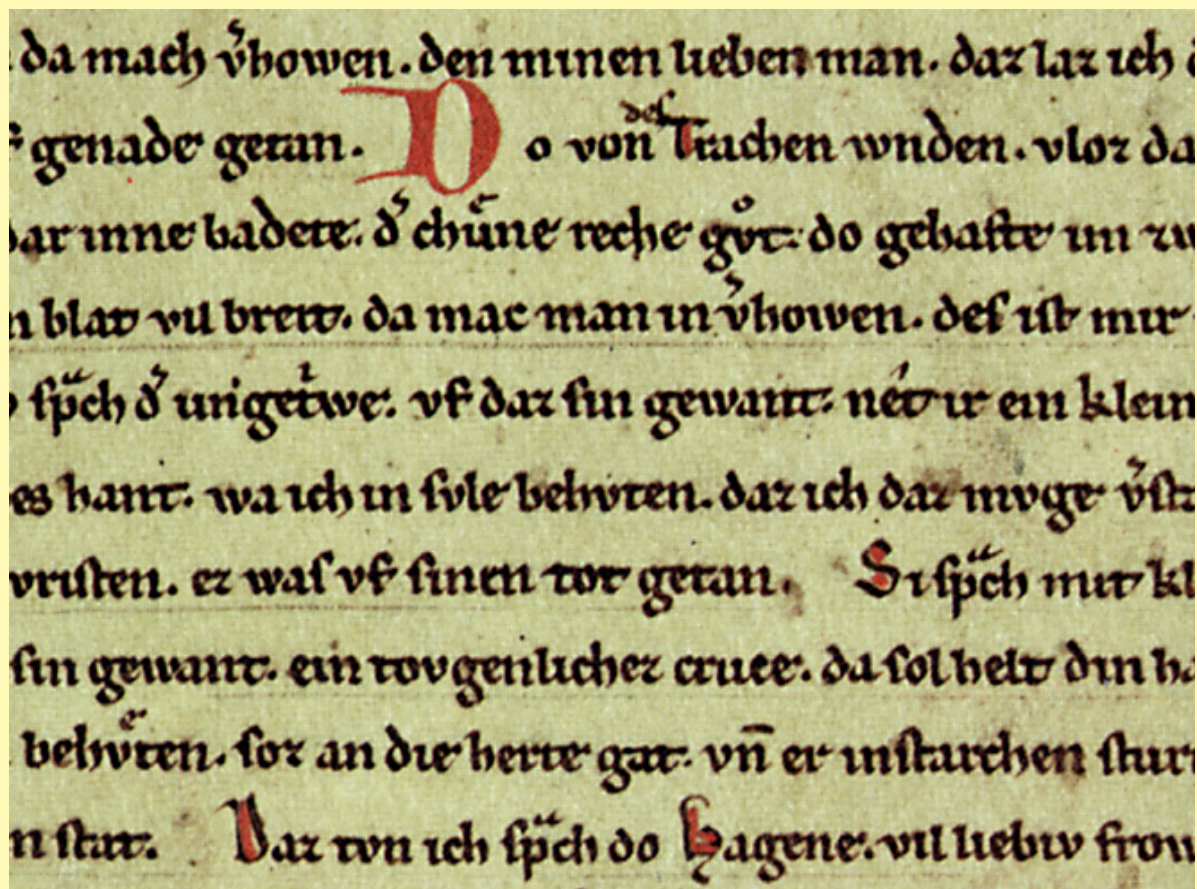 da mach v͛howen. den minen lieben man. daz laz ich
genade getan. Do von des Trachen wnden. vloz da
dar inne badete. d͛ chuͤne reche gvͦt. do gehafte im zw
n blat vil breit. da mac man in v͛howen. des ist mir
spᷓch d͛ ungetᵢwe. vf daz sin gewant. nét ir ein klein
es hant. wa ich in svle behvten. daz ich daz mvge v͛st
vristen. ez was vf sinen tot getan. Si spᷓch mit kl
sin gewant. ein tovgenlichez cruce. da sol helt din ha
behvͤten. soz an die herte gat. vn̄ er in starchen stur
n stat. Daz tvn ich spᷓch do Hagene. vil liebiv frow